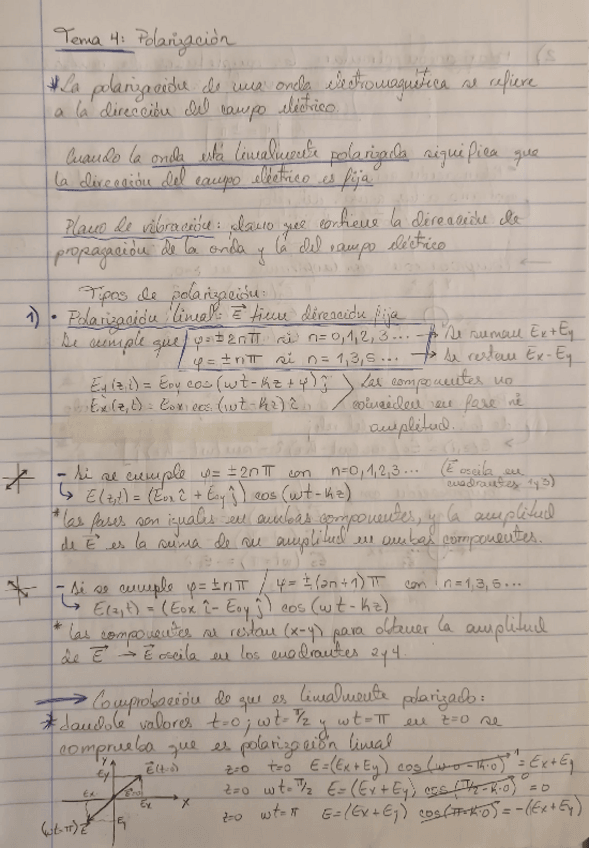 Tema 4: Polarización
*La polarización de una onda electromagnética se refiere
a la dirección del campo eléctrico.
Cuando la onda está linealmente polarizada significa que
la dirección del campo eléctrico es fija
Plano de vibración: plano que contiene la dirección de
propagación de la onda y la del campo eléctrico
Tipos de polarización:
1) • Polarización lineal: E⃗ tiene dirección fija
Se cumple que φ=±2nπ si n=0,1,2,3... → Se suman Ex+Ey
φ=±nπ si n=1,3,5... → Se restan Ex-Ey
Ey(z,t) = Eoy cos(ωt-kz+φ)ĵ
Ex(z,t) = Eox cos(ωt-kz)î
Las componentes no
coinciden en fase ni
amplitud.
- Si se cumple φ=±2nπ con n=0,1,2,3... (E⃗ oscila en
cuadrantes 1y3)
↳ E(z,t) = (Eox î + Eoy ĵ) cos(ωt-kz)
*las fases son iguales en ambas componentes, y la amplitud
de E⃗ es la suma de su amplitud en ambas componentes.
- Si se cumple φ=±nπ / φ=±(2n+1)π con n=1,3,5...
↳ E(z,t) = (Eox î - Eoy ĵ) cos(ωt-kz)
* las componentes se restan (x-y) para obtener la amplitud
de E⃗ → E⃗ oscila en los cuadrantes 2y4.
→ Comprobación de que es linealmente polarizado:
*dandole valores t=0; ωt=π/2 y ωt=π en z=0 se
comprueba que es polarización lineal
z=0 t=0 E=(Ex+Ey) cos(ω·0-k·0) 1 = Ex+Ey
z=0 ωt=π/2 E=(Ex+Ey) cos(π/2-k·0) 0 = 0
z=0 ωt=π E=(Ex+Ey) cos(π-k·0) = -(Ex+Ey)
Y
Ey
E⃗(t=0)
Ex
Ex
X
(ωt=π) E⃗
Ey